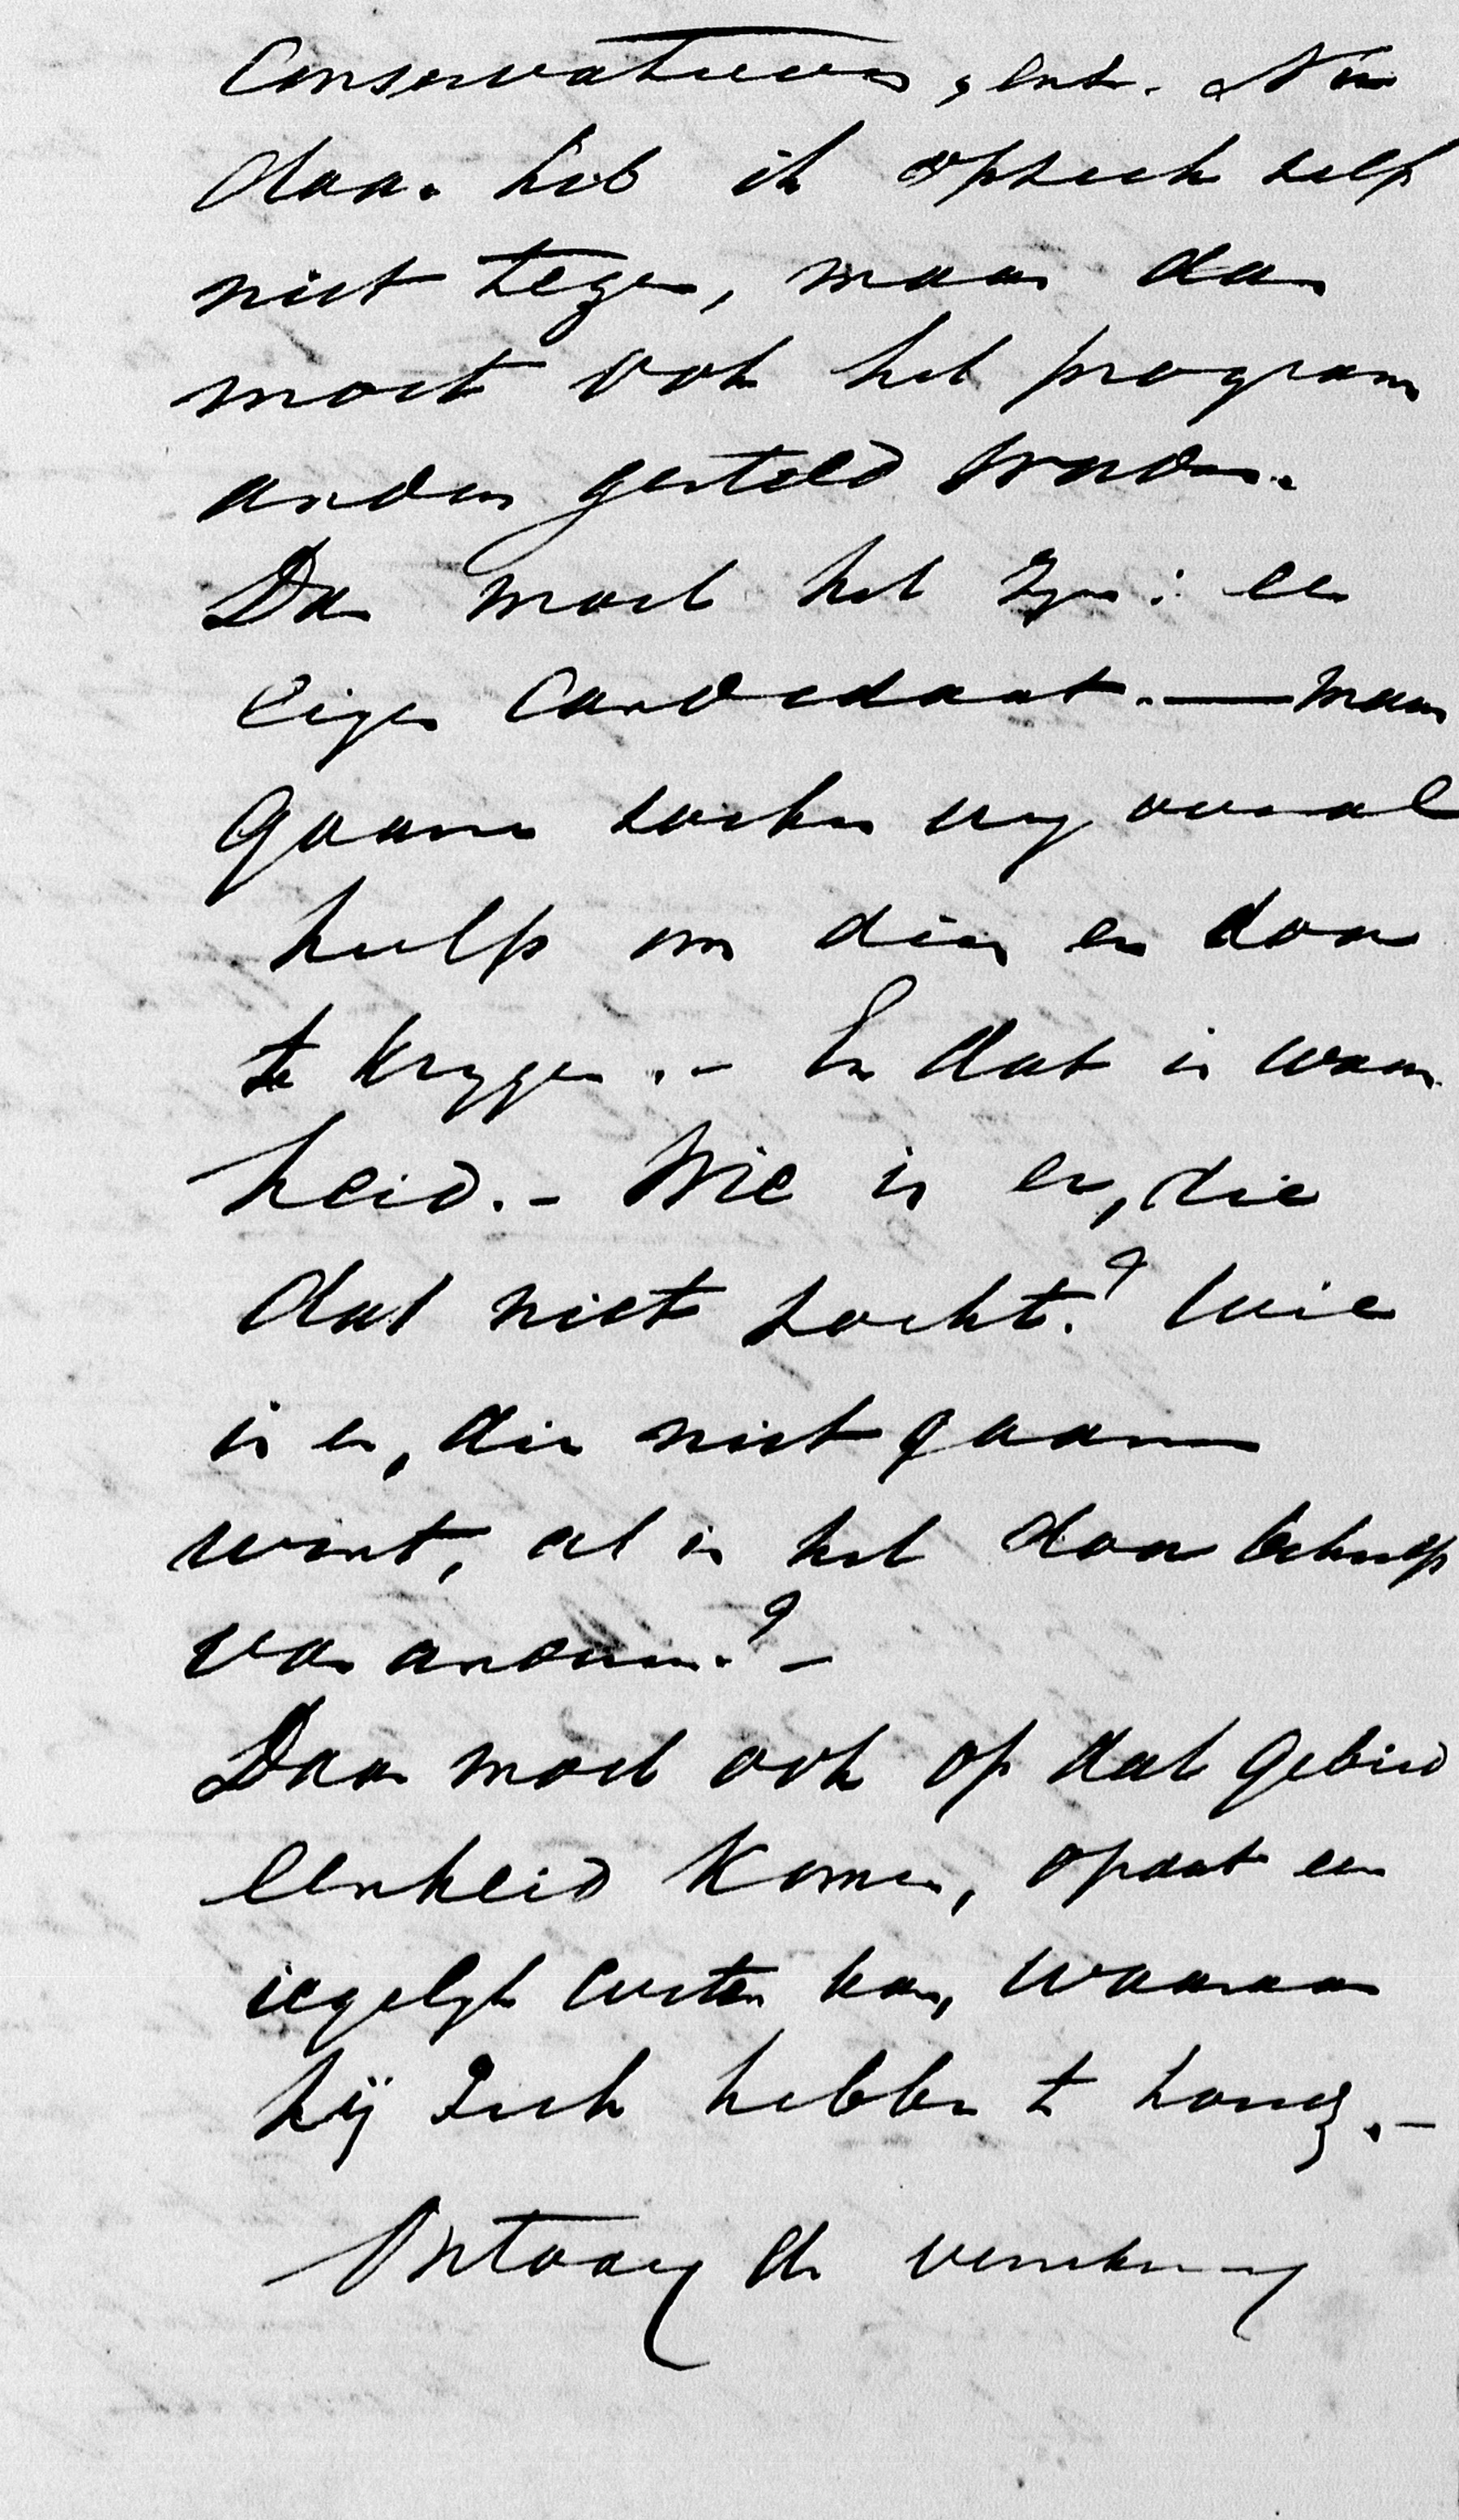 Conservatieven, enz. Nu
daar heb ik opzich zelf
niet tegen, maar dan
moet ook het program
anders gesteld worden.
Dan moet het zyn: een
eigen Candidaat. — maar
gaarne zoeken wy overal
hulp om dien er door
te krygen. - En dat is waar
heid. - Wie is er, die
dat niet zocht? Wie
is er, die niet gaarne
wint, al is het door behulp
van anderen? -
Daar moet ook op dat gebied
eenheid komen, opdat een
iegelyk weten kan, waaraan
hij zich hebbe te houden. -
Ontvang de verzekering